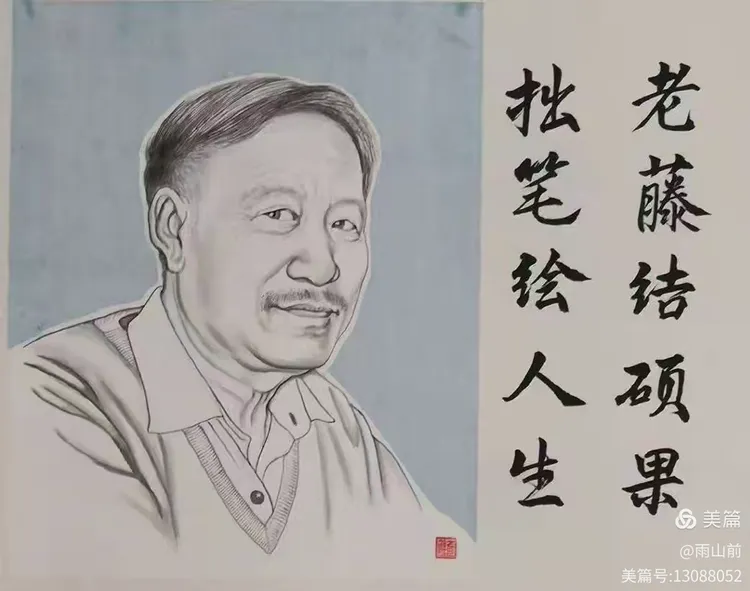 老藤结硕果
拙笔绘人生
美篇
@雨山前
美篇号:13088052